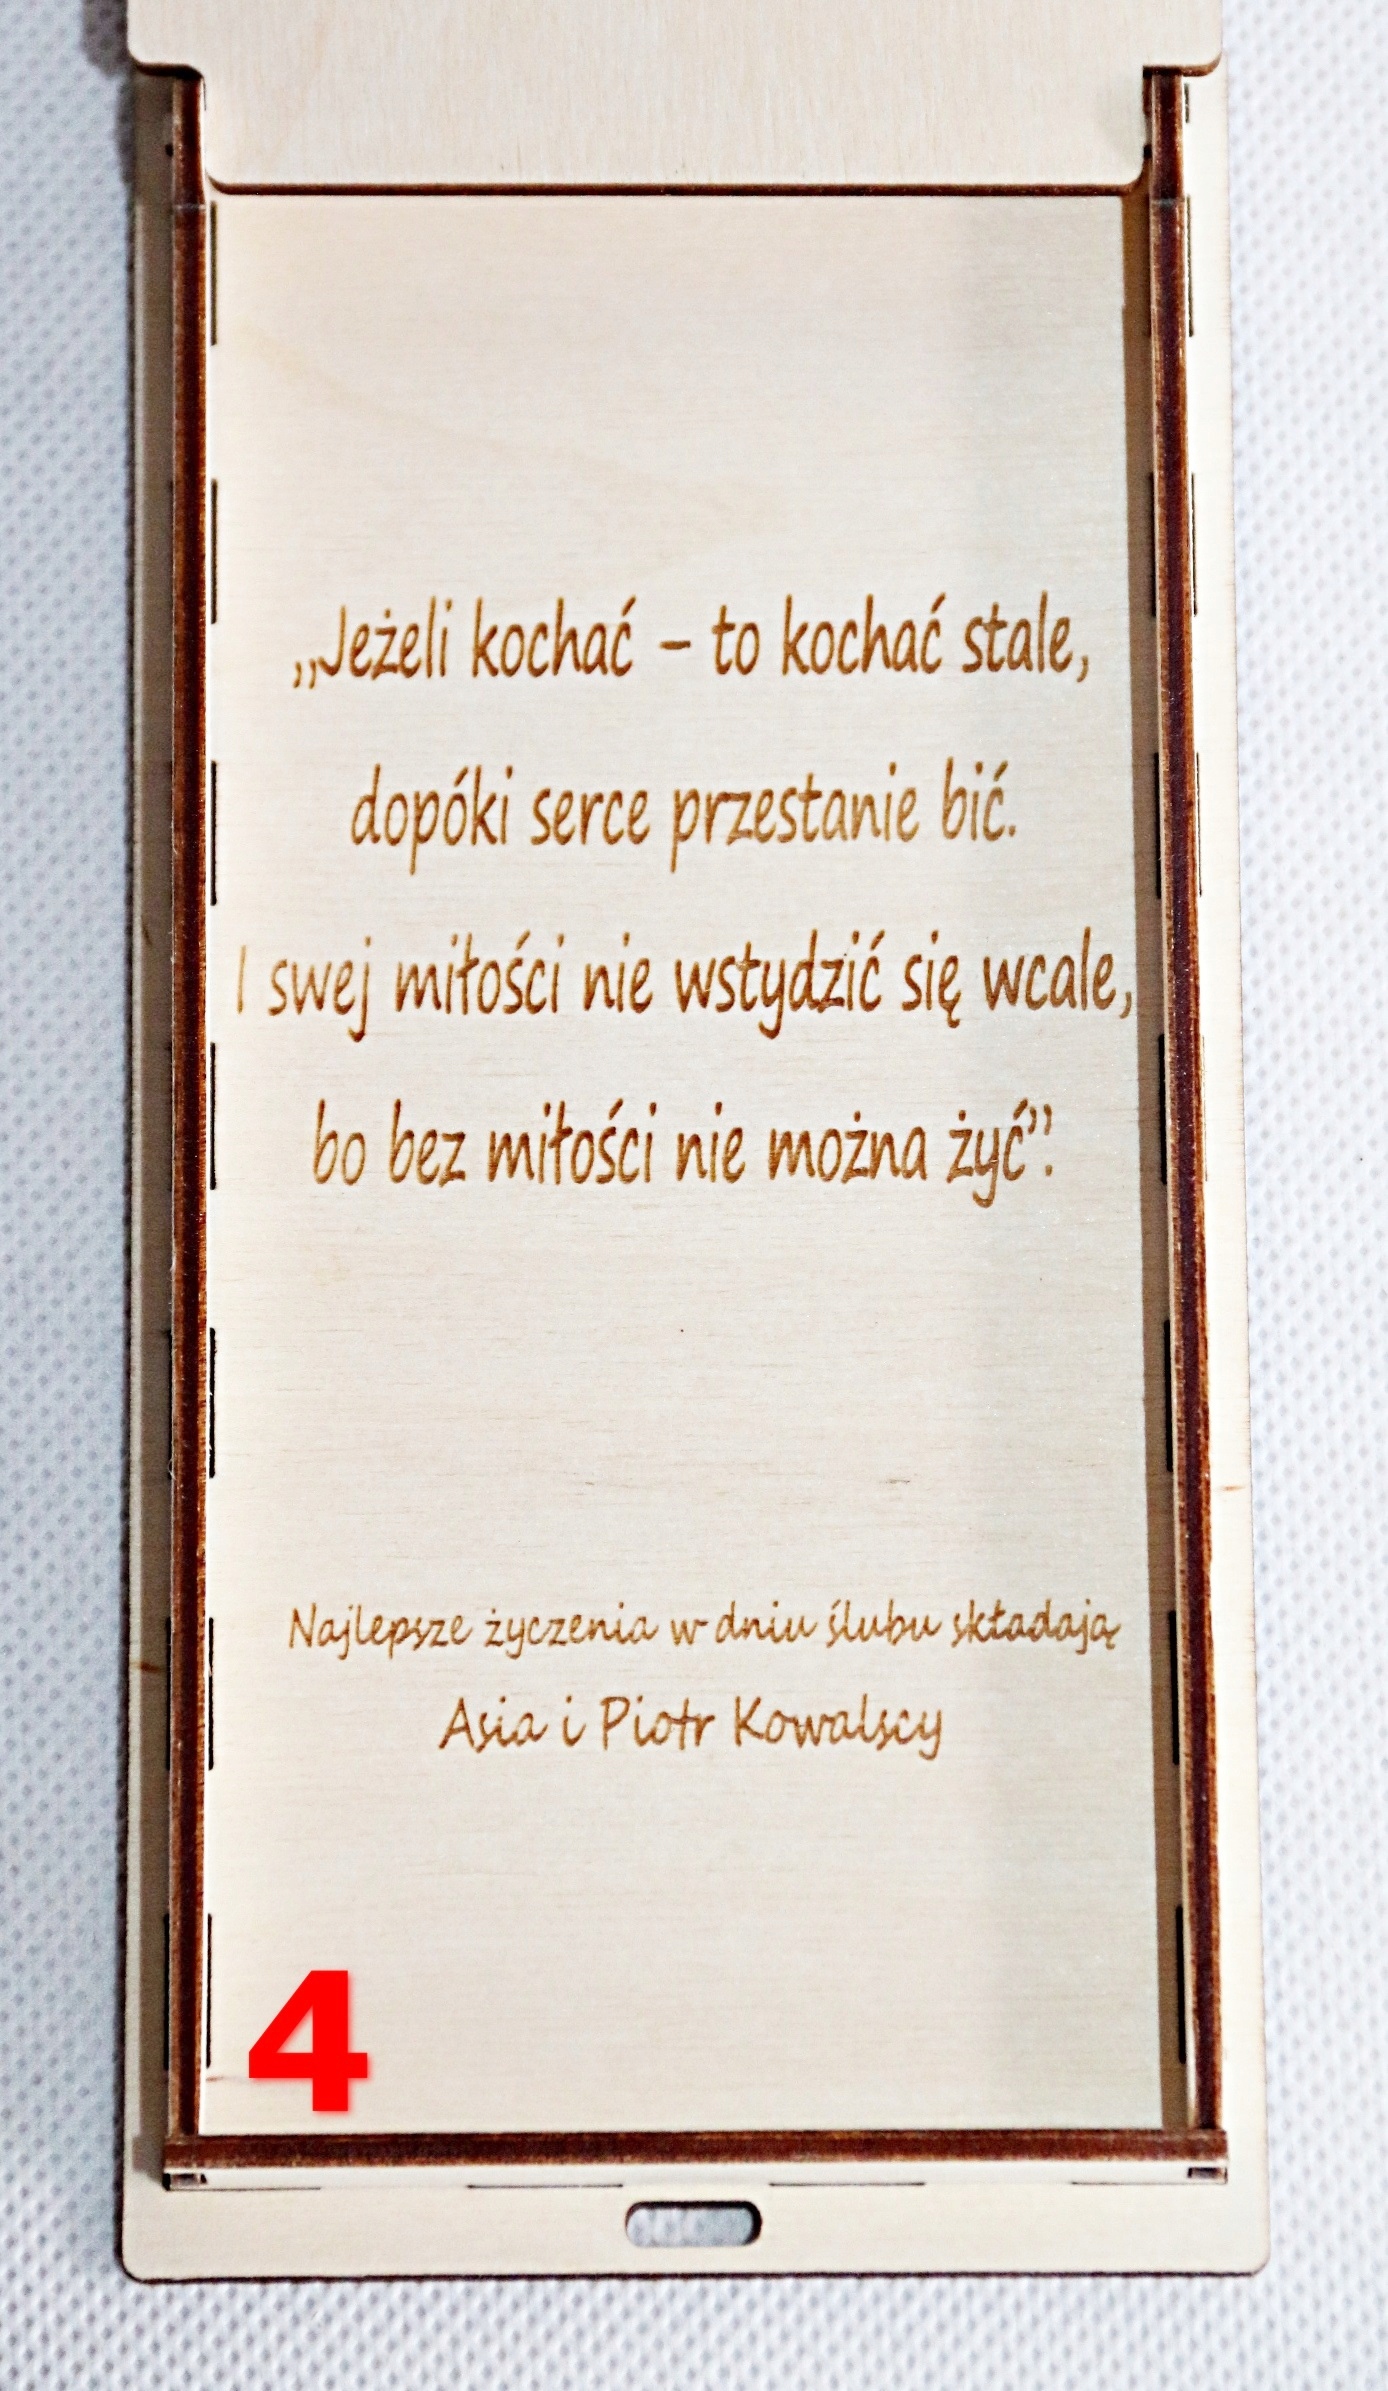 „Jeżeli kochać – to kochać stale,
dopóki serce przestanie bić.
I swej miłości nie wstydzić się wcale,
bo bez miłości nie można żyć”.
Najlepsze życzenia w dniu ślubu składają
Asia i Piotr Kowalscy
4